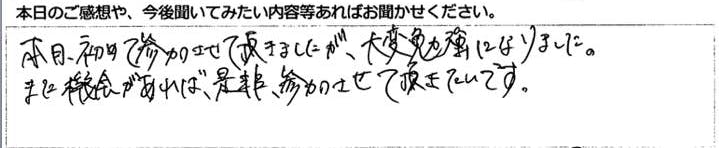 本日のご感想や、今後聞いてみたい内容等あればお聞かせください。
本日、初めて参加させて頂きましたが、大変勉強になりました。
また機会があれば、是非、参加させて頂きたいです。